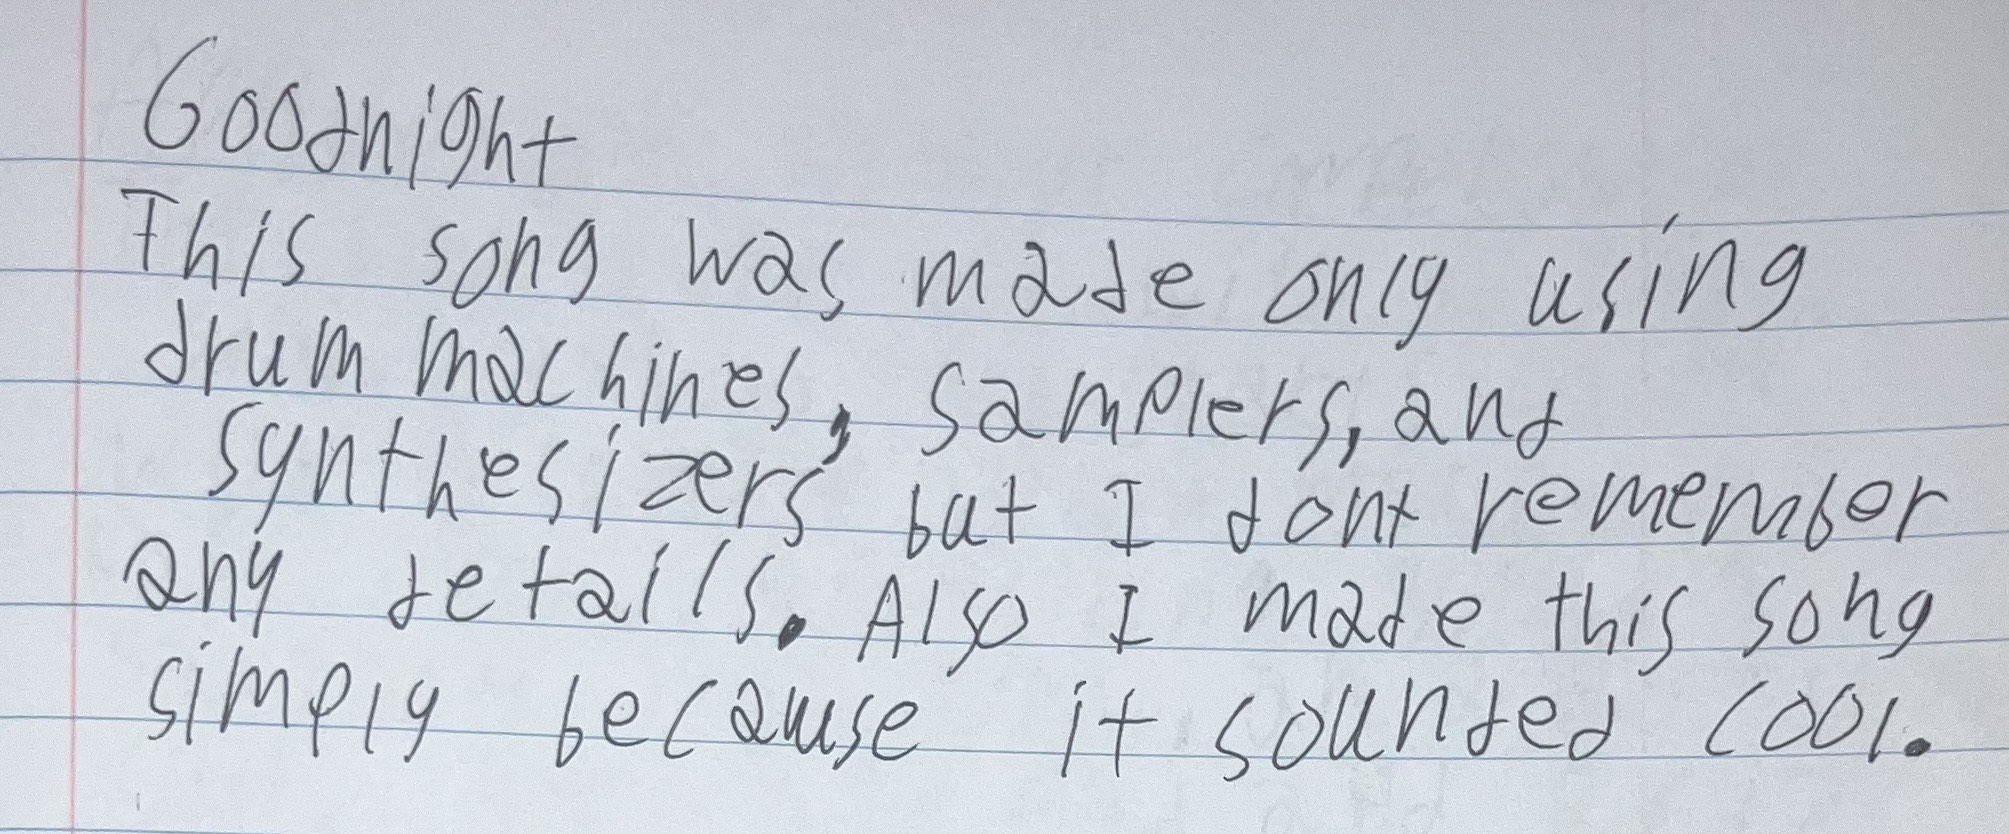 Goodnight
This song was made only using
drum machines, samplers, and
synthesizers but I dont remember
any details. Also I made this song
simply because it sounded cool.